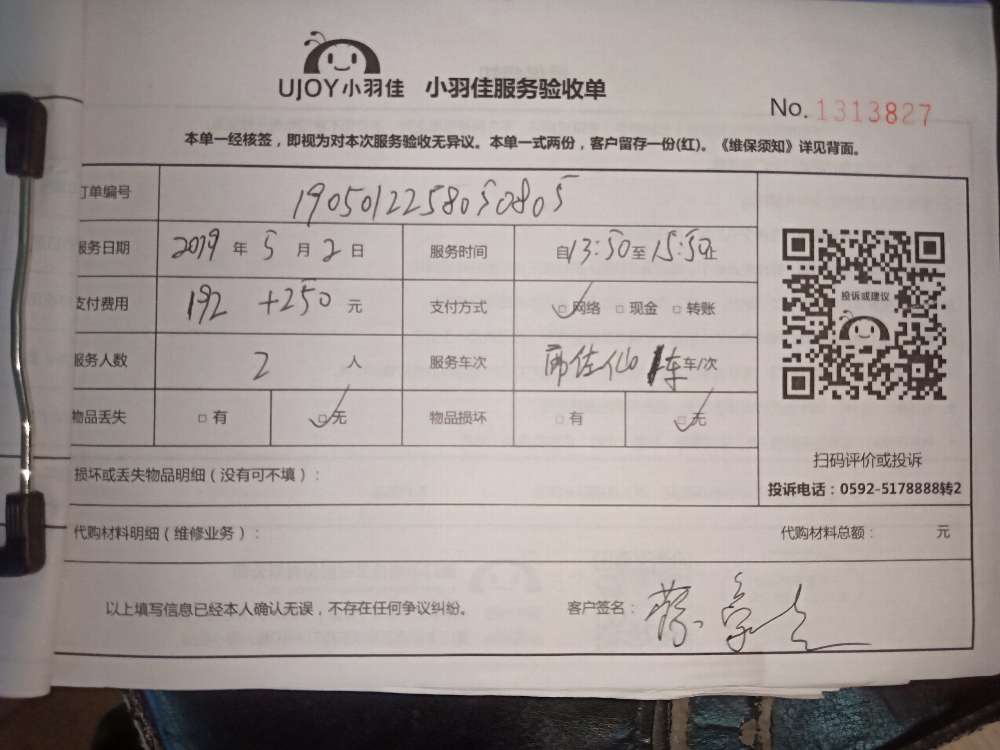 UJOY小羽佳 小羽佳服务验收单
No. 1313827
本单一经核签，即视为对本次服务验收无异议。本单一式两份，客户留存一份(红)。《维保须知》详见背面。
订单编号 1905012258050805
服务日期 2019 年 5 月 2 日 服务时间 自13:50至15:50止
支付费用 192 +250 元 支付方式 网络 现金 转账
服务人数 2 人 服务车次 1车 车/次
物品丢失 有 无 物品损坏 有 无
投诉或建议
扫码评价或投诉
投诉电话：0592-5178888转2
损坏或丢失物品明细（没有可不填）：
代购材料明细（维修业务）： 代购材料总额： 元
以上填写信息已经本人确认无误，不存在任何争议纠纷。 客户签名：